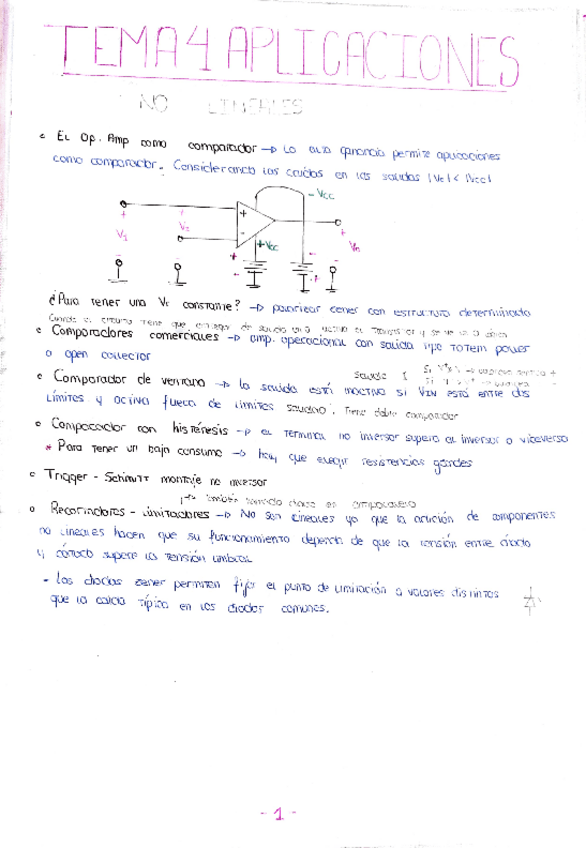 TEMA 4 APLICACIONES
NO LINEALES
El Op. Amp como comparador → La alta ganancia permite aplicaciones
como comparador. Considerando las caidas en las salidas |Ve| < |Vcc|
- Vcc
+
-
V1
V2
+Vcc
Vo
¿Para tener una Vr constante? → polarizar zener con estructura determinada
Comparadores comerciales → amp. operacional con salida tipo TOTEM power
o open collector
Salida
Comparador de ventana → la salida está inactiva si VIN está entre dos
límites y activa fuera de límites Tiene doble comparador
Comparador con histéresis → el terminal no inversor supera al inversor o viceversa
* Para tener un bajo consumo → hay que elegir resistencias grandes
Trigger - Schmitt montaje no inversor
también llamado
Recortadores - Limitadores → No son lineales ya que la actución de componentes
no lineales hacen que su funcionamiento dependa de que la tensión entre ánodo
y cátodo supere la tensión umbral
- Los diodos zener permiten fijar el punto de limitación a valores distintos
que la caida típica en los diodos comunes.
- 1 -